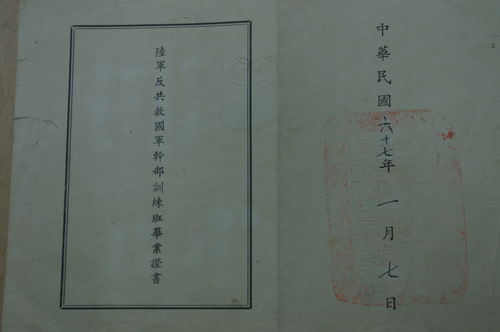 中華民國六十七年一月七日
陸軍反共救國軍幹部訓練班畢業證書